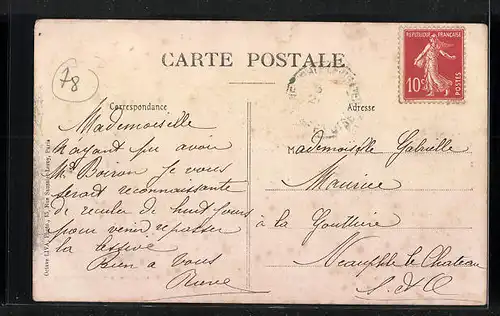 78
CARTE POSTALE
RÉPUBLIQUE FRANÇAISE
10c
POSTES
Correspondance
Adresse
Mademoiselle
N'ayant pu avoir
Mr Boiron je vous
serait reconnaissante
de reculer de huit jours
pour venir repasser
la lessive
Bien à vous
Mademoiselle Gabrielle
Maurice
à la Gouttière
Neauphle le Chateau
S. & O